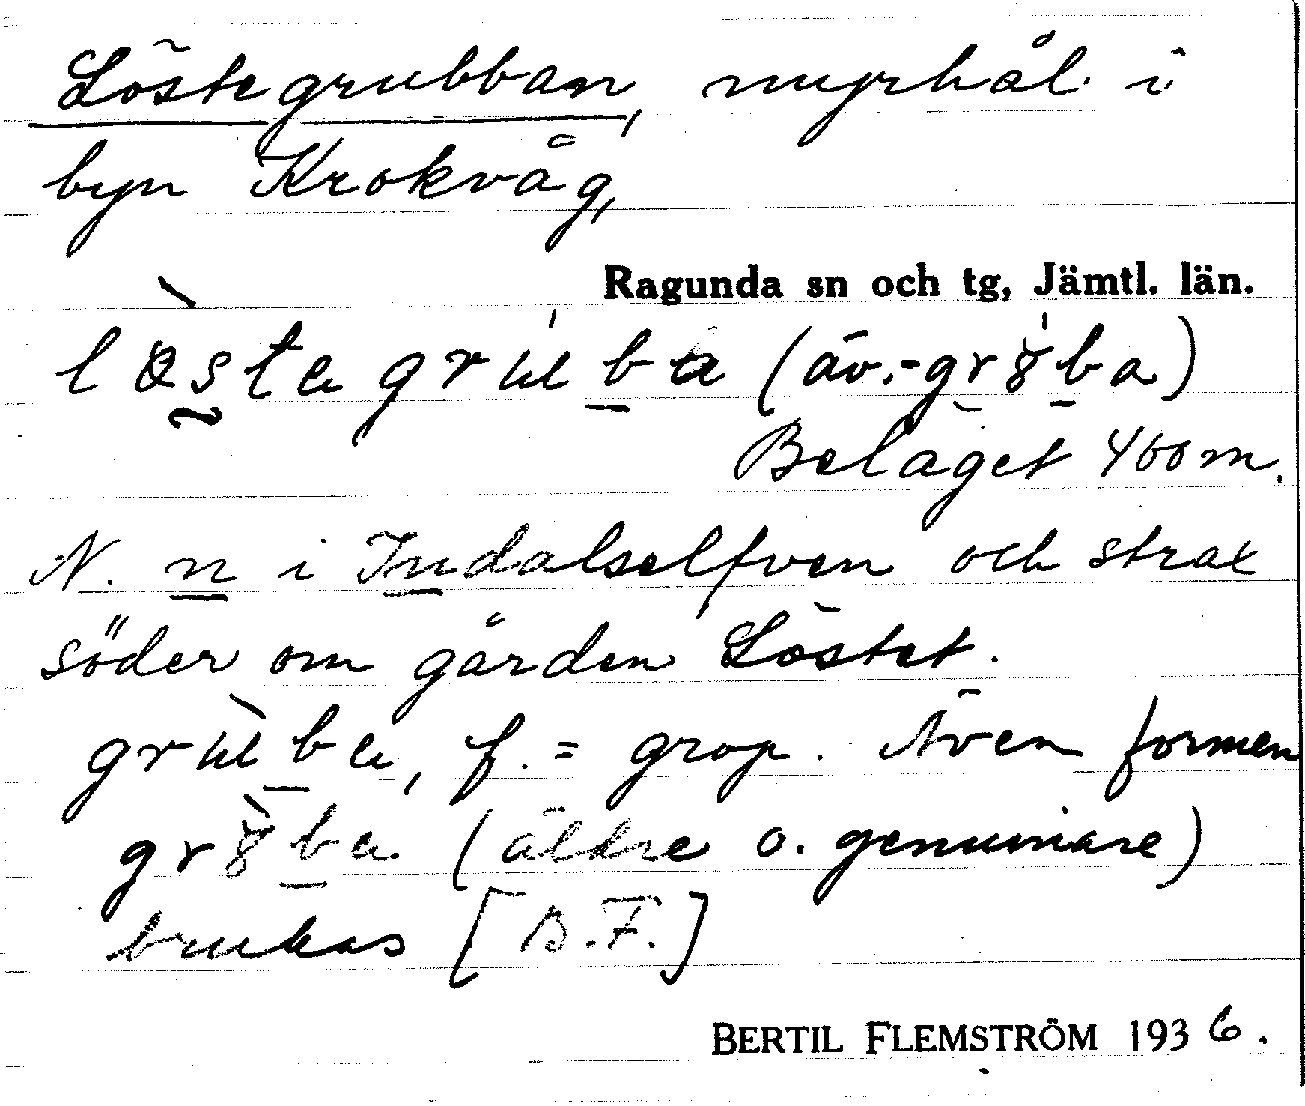 Löstegrubban, myrhål i
byn Krokvåg,
Ragunda sn och tg, Jämtl. län.
(äv.-gr8ba)
Beläget 400 m.
N. n i Indalselfven och strax
söder om gården Löstet.
f. = grop. Även formen
gr8ba (äldre o. genuinare)
brukas [B.F.]
BERTIL FLEMSTRÖM 1936.